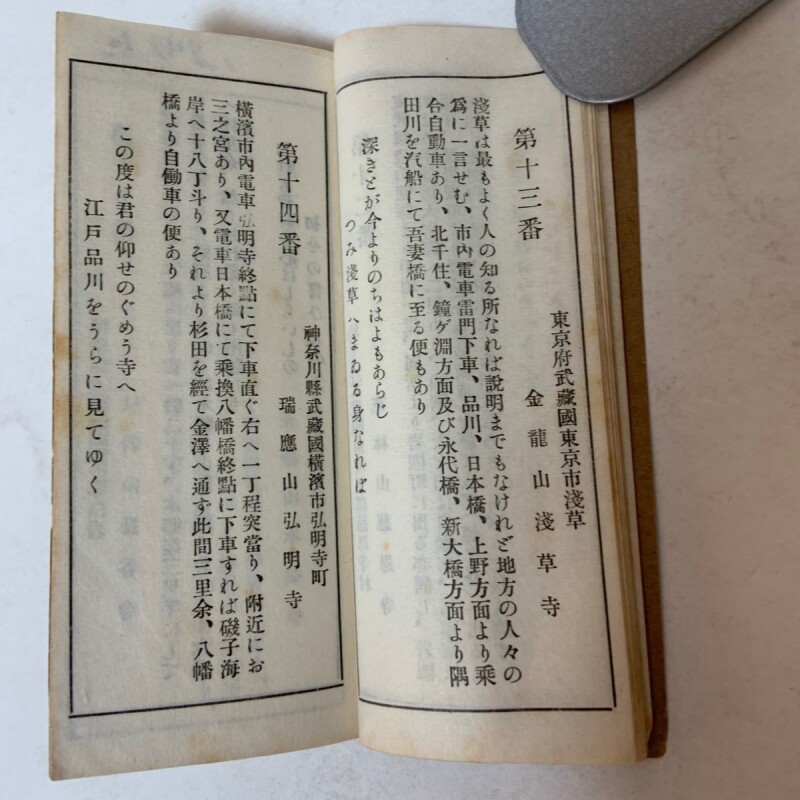 東京府武藏國東京市淺草
第十三番
金龍山淺草寺
淺草は最もよく人の知る所なれば說明までもなけれど地方の人々の
爲に一言せむ、市內電車雷門下車、品川、日本橋、上野方面より乘
合自動車あり、北千住、鐘ゲ淵方面及び永代橋、新大橋方面より隅
田川を汽船にて吾妻橋に至る便もあり
深きとが今よりのちはよもあらじ
つみ淺草へまゐる身なれば
神奈川縣武藏國橫濱市弘明寺町
第十四番
瑞應山弘明寺
橫濱市內電車弘明寺終點にて下車直ぐ右へ一丁程突當り、附近にお
三之宮あり、又電車日本橋にて乘換八幡橋終點に下車すれば磯子海
岸へ十八丁斗り、それより杉田を經て金澤へ通ず此間三里余、八幡
橋より自働車の便あり
この度は君の仰せのぐめう寺へ
江戶品川をうらに見てゆく